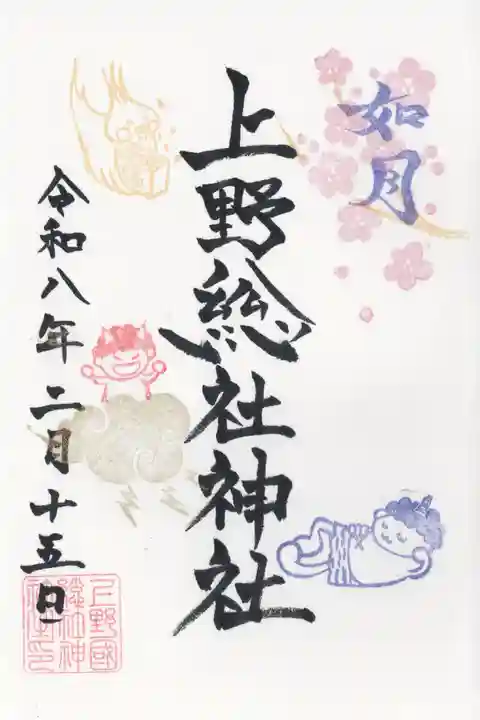 如月
上野総社神社
令和八年二月十五日
上野國
総社神
社之印